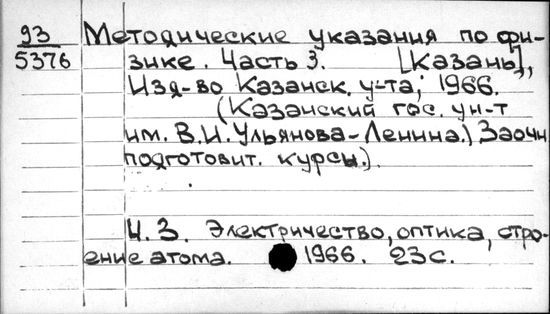 93 Методические указания по фи-
5376 зике. Часть 3. [Казань],
Изд-во Казанск. у-та, 1966.
(Казанский гос. ун-т
им. В.И. Ульянова-Ленина.) Заочн.
подготовит. курсы.).
Ч. 3. Электричество, оптика, стро-
ение атома. 1966. 23с.